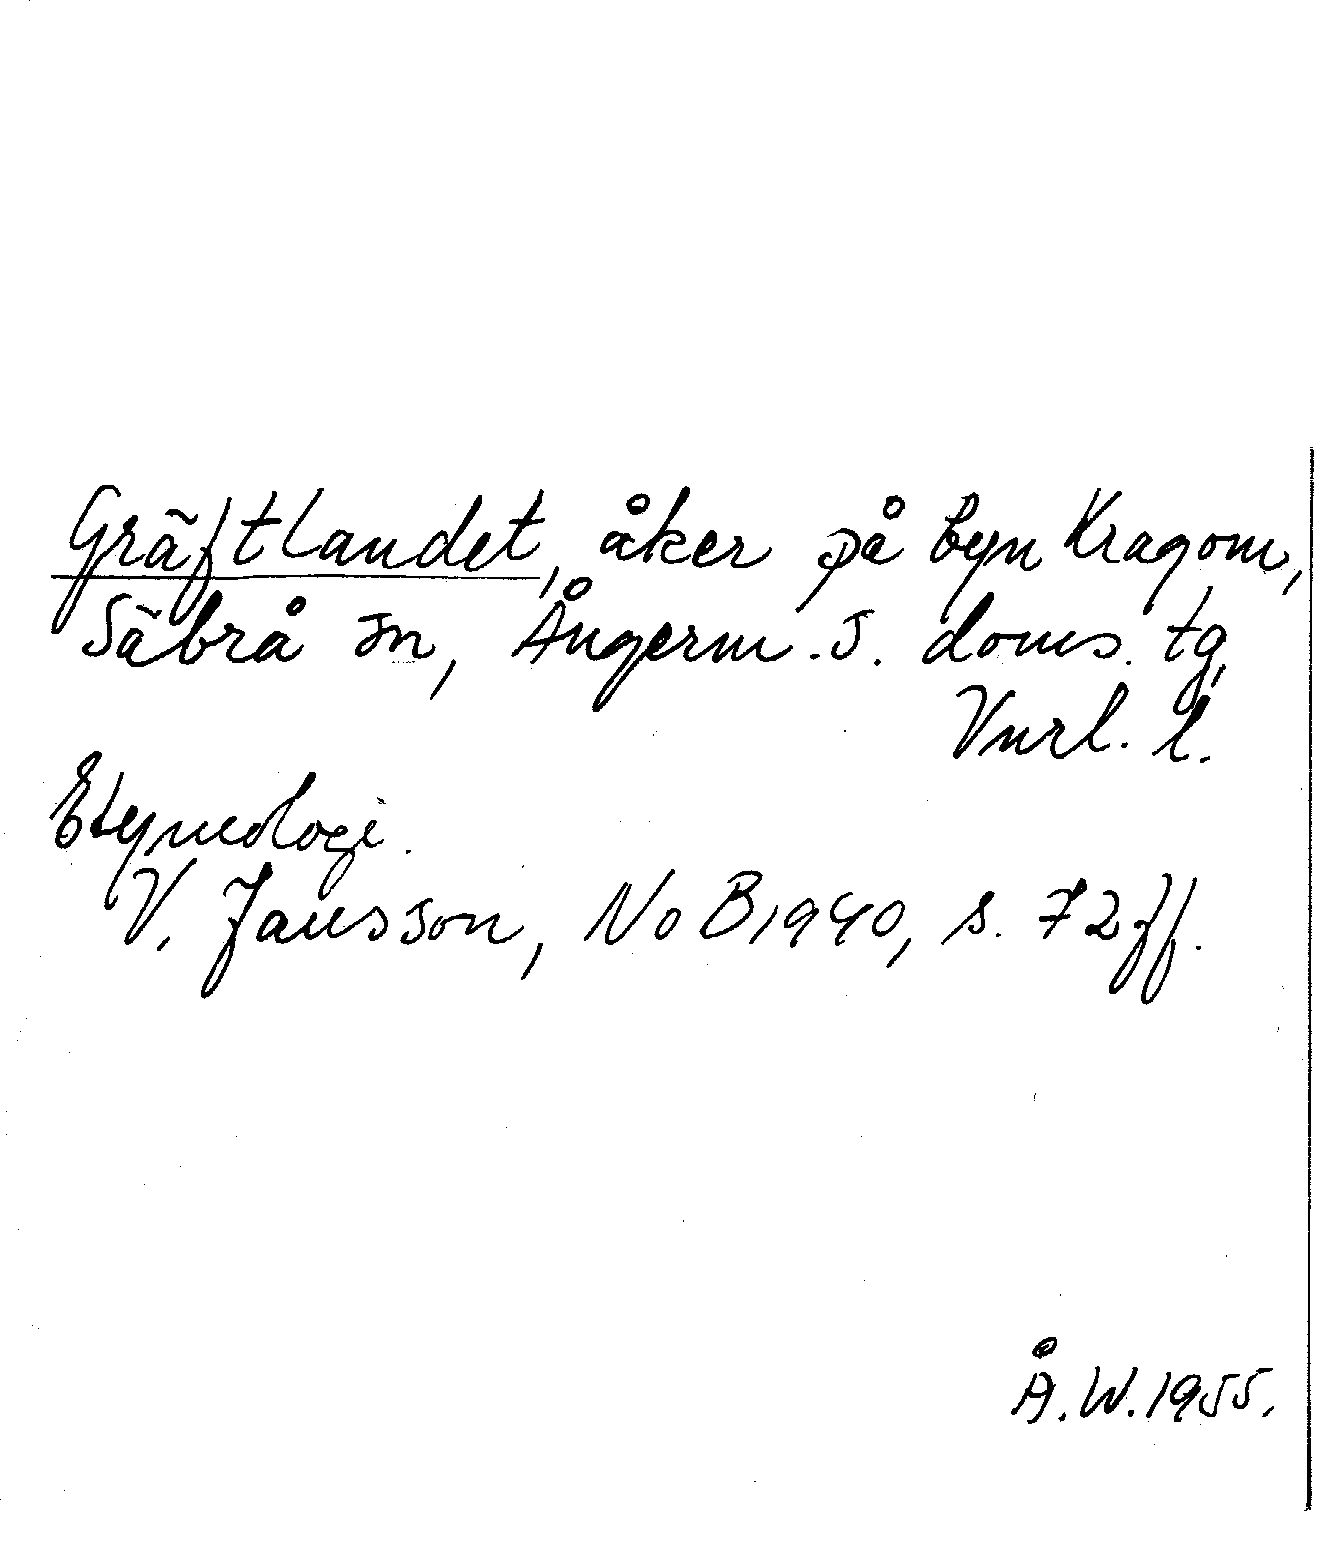 Gräftlandet, åker på byn Kragom,
Säbrå sn, Ångerm. s. doms. tg,
Vnrl. l.
Etymologi.
V. Jansson, NoB 1940, s. 72 ff.
Å. W. 1955.